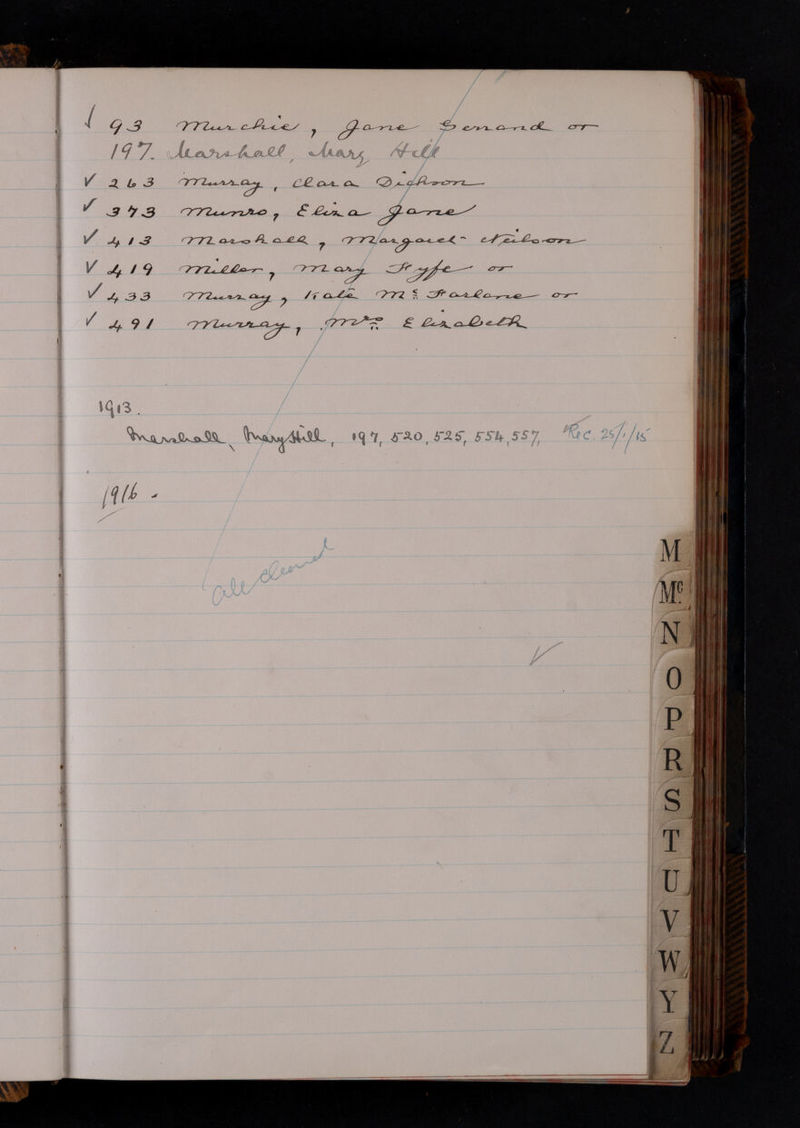 √ 93 Murchie, Jane or
197. Marshall, Mary Hill
√ 263 Murray, Clara Dickson
√ 373 Munro, Eliza Jane
√ 413 Marshall, Margaret Neilson
√ 419 Miller, Mary Fyfe or
√ 433 Murray, Kate McFarlane or
√ 491 Murray, Mrs Elizabeth
1913.
Marshall, Mary Hill, 197, 520, 525, 554, 557, Rec. 25/1/15
1916 -
all cleared
√
M
Mc
N
O
P
R
S
T
U
V
W
Y
Z